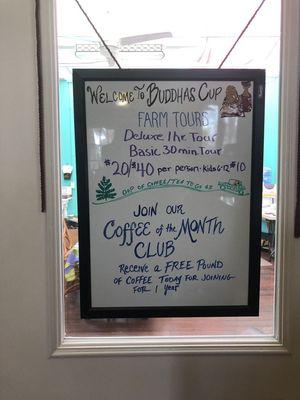 Welcome To Buddhas Cup
FARM TOURS
Deluxe 1hr. Tour
Basic 30min. Tour
$20/$40 per person • Kids 6-12 $10
CUP OF COFFEE/TEA TO GO $2
JOIN OUR
Coffee of the Month
CLUB
Receive a FREE Pound
of Coffee Today for Joining
for 1 Year